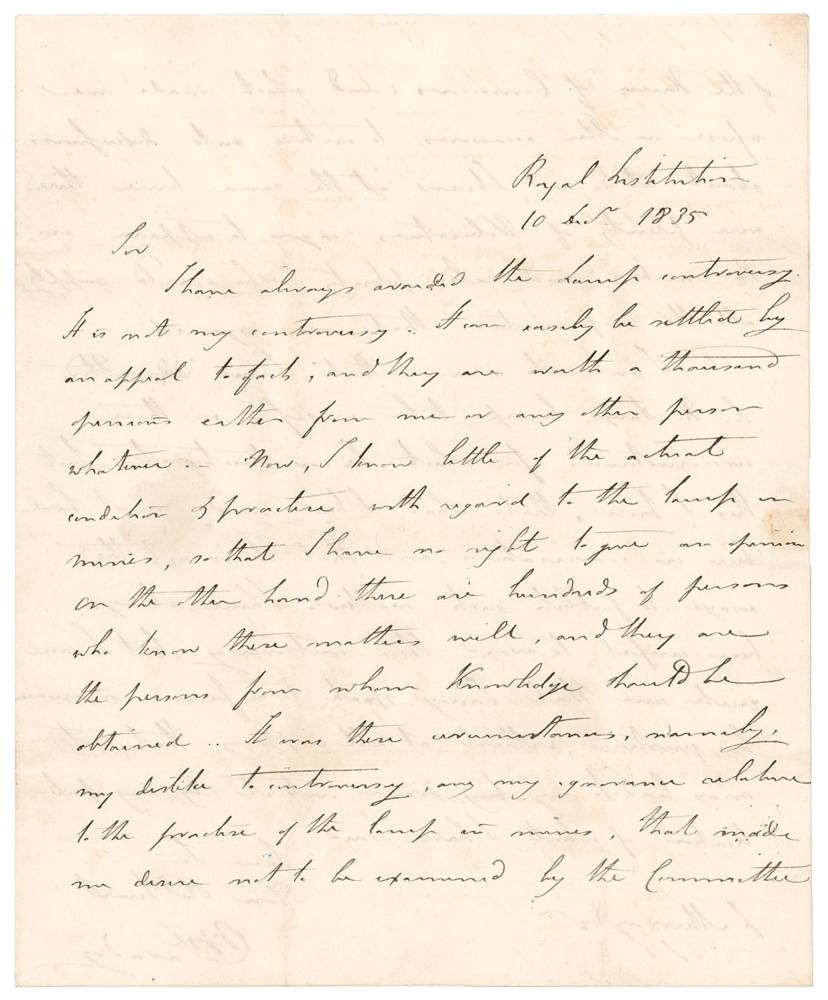 Royal Institution
10 Decr. 1835
Sir
I have always avoided the Lamp controversy.
It is not my controversy. It can easily be settled by
an appeal to facts, and they are worth a thousand
opinions either from me or any other person
whatever. – Now, I know little of the actual
condition & practise with regard to the lamp in
mines, so that I have no right to give an opinion
on the other hand there are hundreds of persons
who know these matters well, and they are
the persons from whom Knowledge should be
obtained .. It was these circumstances, namely,
my dislike to controversy, any my ignorance relative
to the practise of the lamp in mines, that made
me desire not to be examined by the Committee